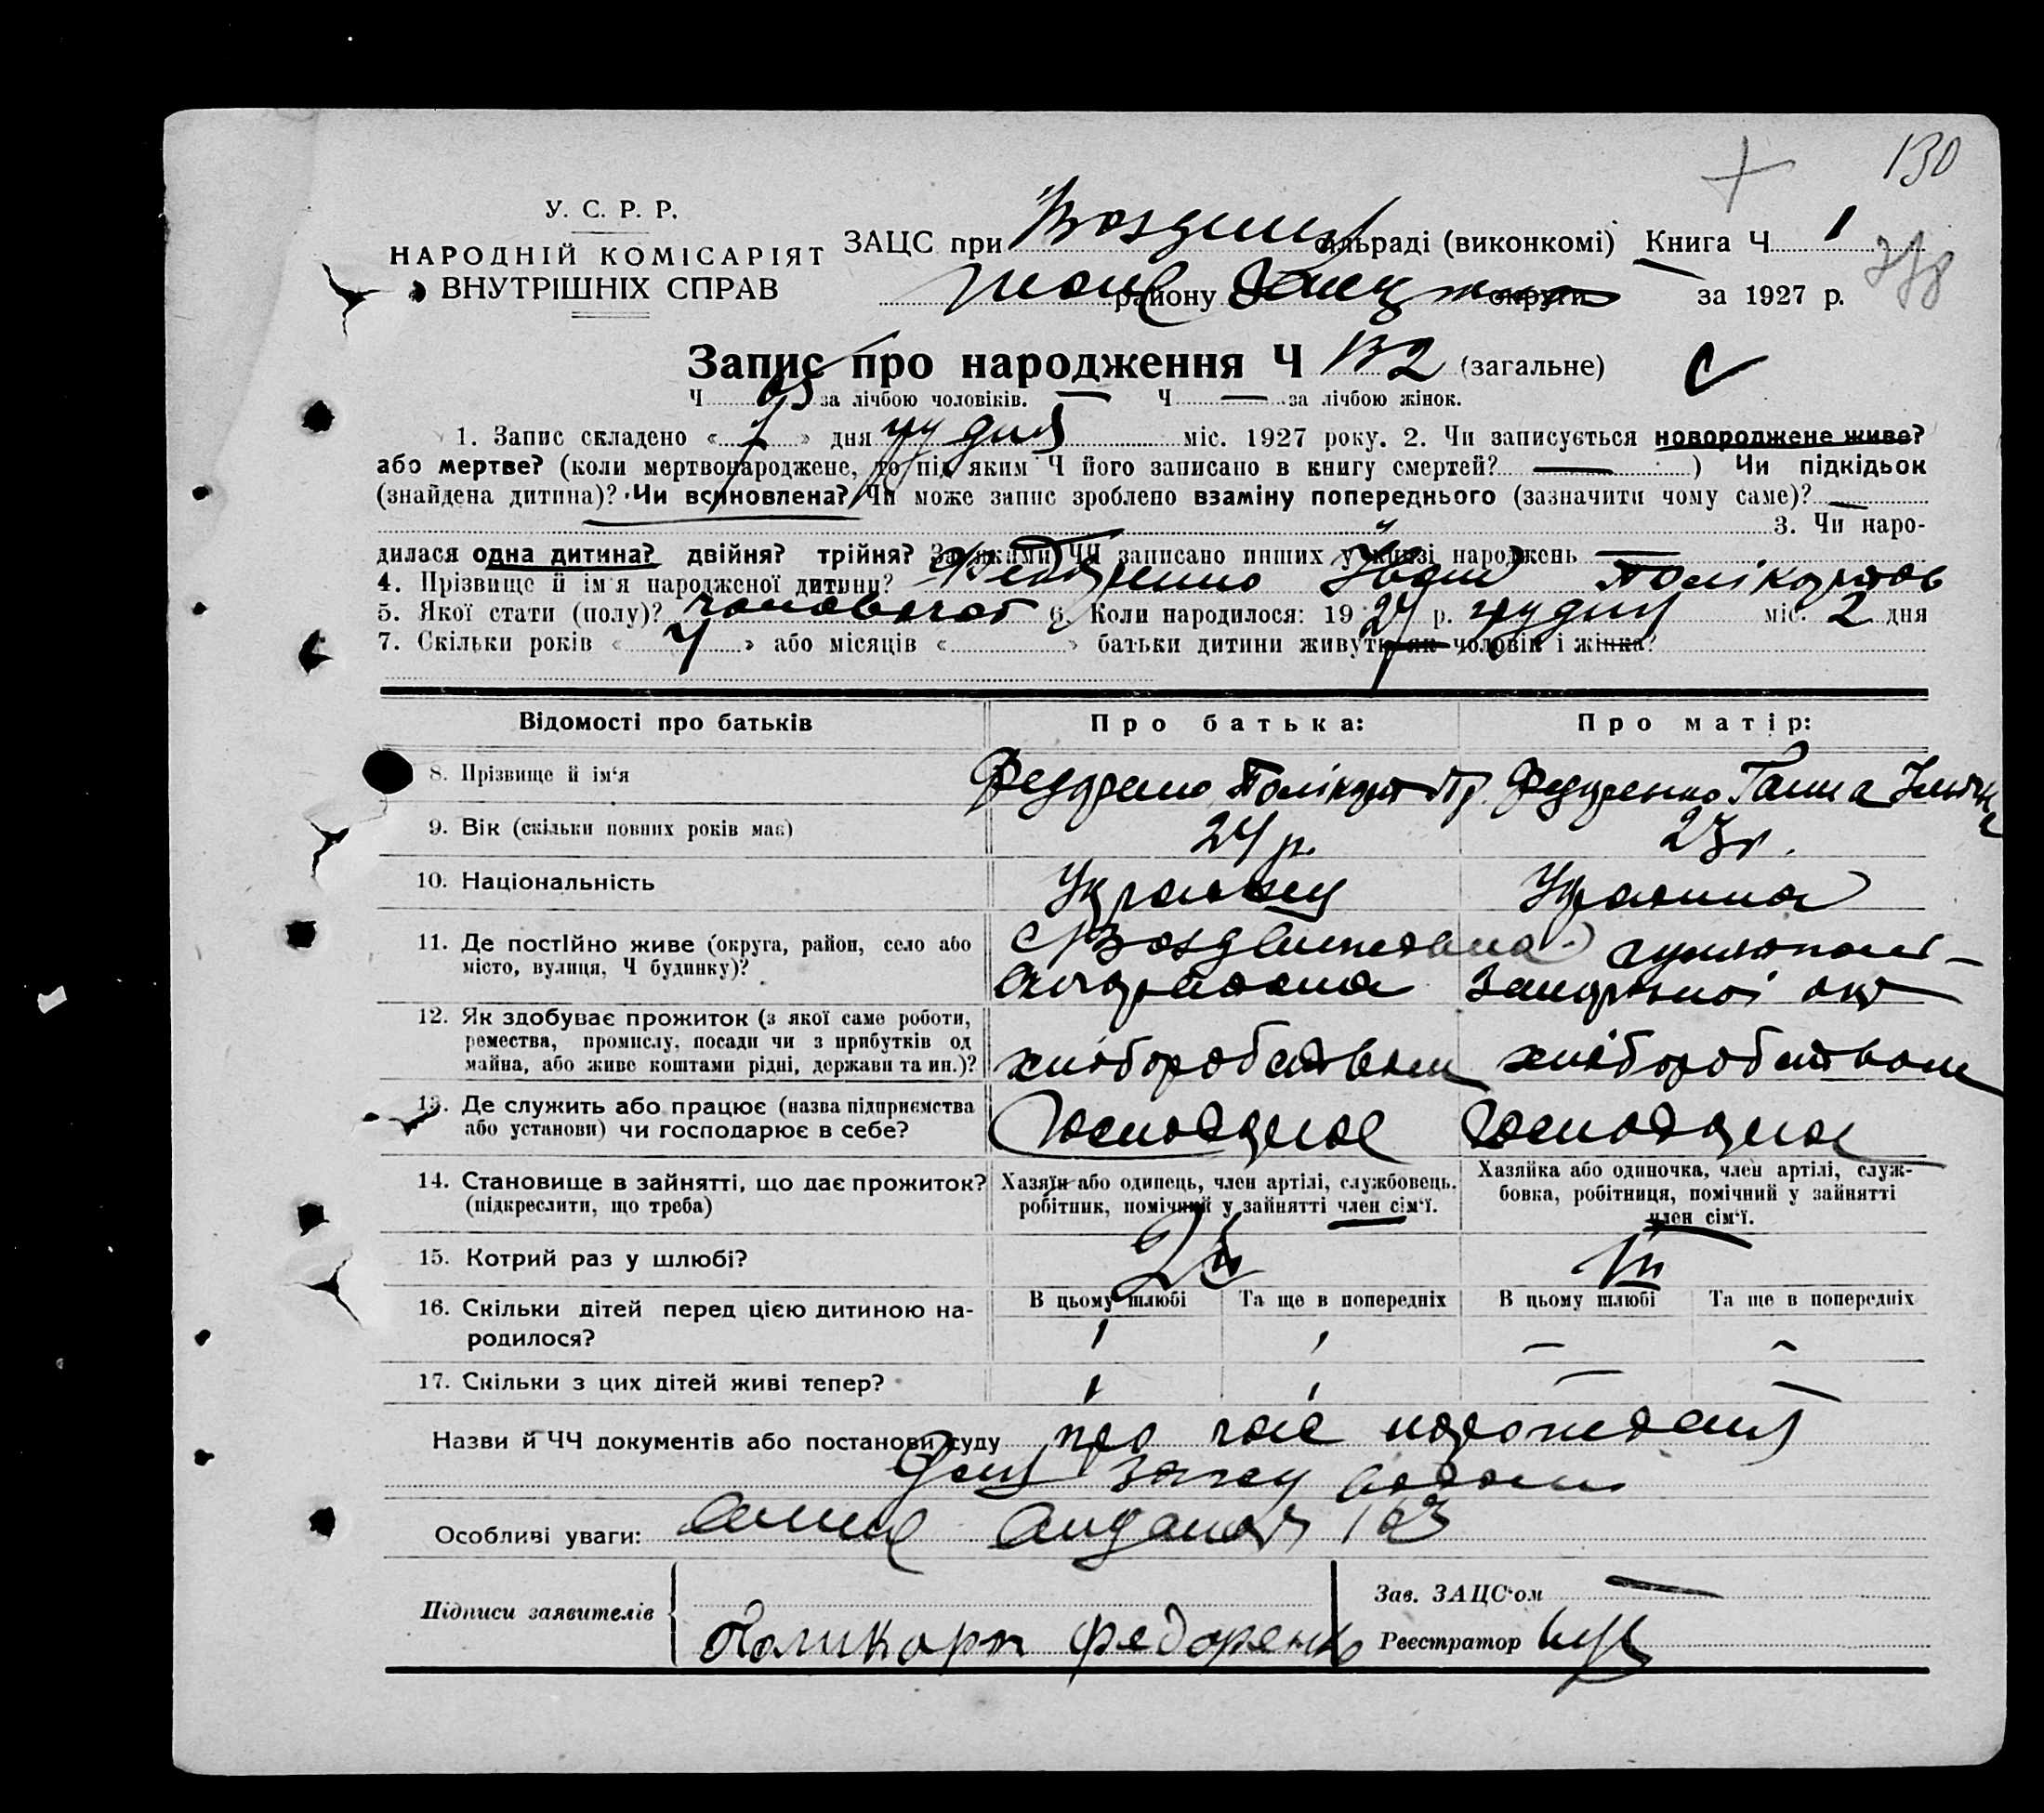 130
У. С. Р. Р.
НАРОДНІЙ КОМІСАРІЯТ
ВНУТРІШНІХ СПРАВ
ЗАЦС при сільраді (виконкомі) Книга Ч 1
району округи за 1927 р.
Запис про народження Ч 132 (загальне)
Ч за лічбою чоловіків. Ч — за лічбою жінок.
1. Запис складено « 7 » дня грудня міс. 1927 року. 2. Чи записується новороджене живе?
або мертве? (коли мертвонароджене, то під яким Ч його записано в книгу смертей? — ) Чи підкідьок
(знайдена дитина)? Чи всиновлена? Чи може запис зроблено взаміну попереднього (зазначити чому саме)? —
3. Чи наро-
дилася одна дитина? двійня? трійня? За якими ЧЧ записано инших у книзі народжень —
4. Прізвище й ім'я народженої дитини? Федоренко Іван Полікарпов
5. Якої стати (полу)? чоловічої 6. Коли народилося: 1927 р. грудня міс. 2 дня
7. Скільки років « » або місяців « » батьки дитини живуть як чоловік і жінка?
Відомості про батьків Про батька: Про матір:
8. Прізвище й ім'я Федоренко Полікарп Гр. Федоренко Ганна
9. Вік (скільки повних років має) 24 р. 23 р.
10. Національність Українец Українка
11. Де постійно живе (округа, район, село або С Воздвиженвка
місто, вулиця, Ч будинку)? Запорізької окр
12. Як здобуває прожиток (з якої саме роботи,
ремества, промислу, посади чи з прибутків од
майна, або живе коштами рідні, держави та ин.)? хліборобством хліборобством
13. Де служить або працює (назва підприємства
або установи) чи господарює в себе?
14. Становище в зайнятті, що дає прожиток? Хазяїн або одинець, член артілі, службовець, Хазяйка або одиночка, член артілі, служ-
(підкреслити, що треба) робітник, помічний у зайнятті член сім'ї. бовка, робітниця, помічний у зайнятті
член сім'ї.
15. Котрий раз у шлюбі? 2й
16. Скільки дітей перед цією дитиною на- В цьому шлюбі Та ще в попередніх В цьому шлюбі Та ще в попередніх
родилося? 1 1 — —
17. Скільки з цих дітей живі тепер? 1 1 — —
Назви й ЧЧ документів або постанови суду про час народження
Особливі уваги:
Підписи заявителів Поликарп Федоренко
Зав. ЗАЦС'ом —
Реєстратор